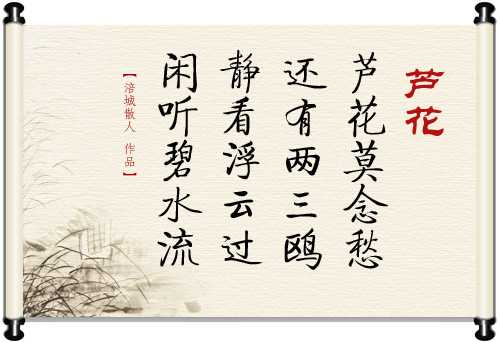 芦花
芦花莫念愁
还有两三鸥
静看浮云过
闲听碧水流
【涪城散人 作品】